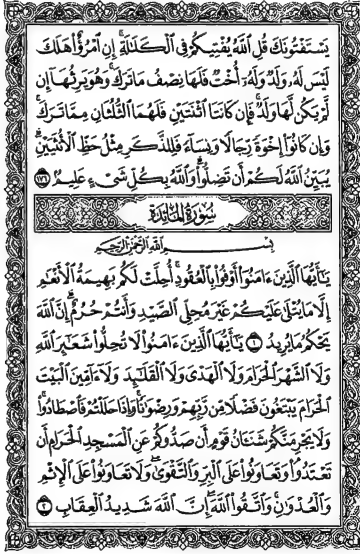 يَسْتَفْتُونَكَ قُلِ ٱللَّهُ يُفْتِيكُمْ فِى ٱلْكَلَٰلَةِ ۚ إِنِ ٱمْرُؤٌا۟ هَلَكَ
لَيْسَ لَهُۥ وَلَدٌ وَلَهُۥٓ أُخْتٌ فَلَهَا نِصْفُ مَا تَرَكَ ۚ وَهُوَ يَرِثُهَآ إِن
لَّمْ يَكُن لَّهَا وَلَدٌ ۚ فَإِن كَانَتَا ٱثْنَتَيْنِ فَلَهُمَا ٱلثُّلُثَانِ مِمَّا تَرَكَ ۚ
وَإِن كَانُوٓا۟ إِخْوَةً رِّجَالًا وَنِسَآءً فَلِلذَّكَرِ مِثْلُ حَظِّ ٱلْأُنثَيَيْنِ ۗ
يُبَيِّنُ ٱللَّهُ لَكُمْ أَن تَضِلُّوا۟ ۗ وَٱللَّهُ بِكُلِّ شَىْءٍ عَلِيمٌۢ ١٧٦
سُورَةُ المَائِدَة
بِسْمِ ٱللَّهِ ٱلرَّحْمَٰنِ ٱلرَّحِيمِ
يَٰٓأَيُّهَا ٱلَّذِينَ ءَامَنُوٓا۟ أَوْفُوا۟ بِٱلْعُقُودِ ۚ أُحِلَّتْ لَكُم بَهِيمَةُ ٱلْأَنْعَٰمِ
إِلَّا مَا يُتْلَىٰ عَلَيْكُمْ غَيْرَ مُحِلِّى ٱلصَّيْدِ وَأَنتُمْ حُرُمٌ ۗ إِنَّ ٱللَّهَ
يَحْكُمُ مَا يُرِيدُ ١ يَٰٓأَيُّهَا ٱلَّذِينَ ءَامَنُوا۟ لَا تُحِلُّوا۟ شَعَٰٓئِرَ ٱللَّهِ
وَلَا ٱلشَّهْرَ ٱلْحَرَامَ وَلَا ٱلْهَدْىَ وَلَا ٱلْقَلَٰٓئِدَ وَلَآ ءَآمِّينَ ٱلْبَيْتَ
ٱلْحَرَامَ يَبْتَغُونَ فَضْلًا مِّن رَّبِّهِمْ وَرِضْوَٰنًا ۚ وَإِذَا حَلَلْتُمْ فَٱصْطَادُوا۟ ۚ
وَلَا يَجْرِمَنَّكُمْ شَنَـَٔانُ قَوْمٍ أَن صَدُّوكُمْ عَنِ ٱلْمَسْجِدِ ٱلْحَرَامِ أَن
تَعْتَدُوا۟ ۘ وَتَعَاوَنُوا۟ عَلَى ٱلْبِرِّ وَٱلتَّقْوَىٰ ۖ وَلَا تَعَاوَنُوا۟ عَلَى ٱلْإِثْمِ
وَٱلْعُدْوَٰنِ ۚ وَٱتَّقُوا۟ ٱللَّهَ ۖ إِنَّ ٱللَّهَ شَدِيدُ ٱلْعِقَابِ ٢